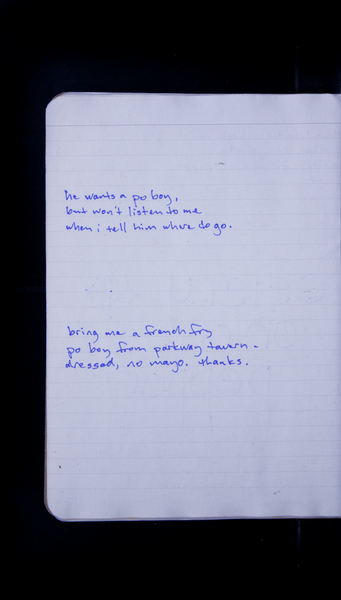 he wants a po boy,
but won't listen to me
when i tell him where do go.
bring me a french fry
po boy from parkway tavern -
dressed, no mayo. thanks.